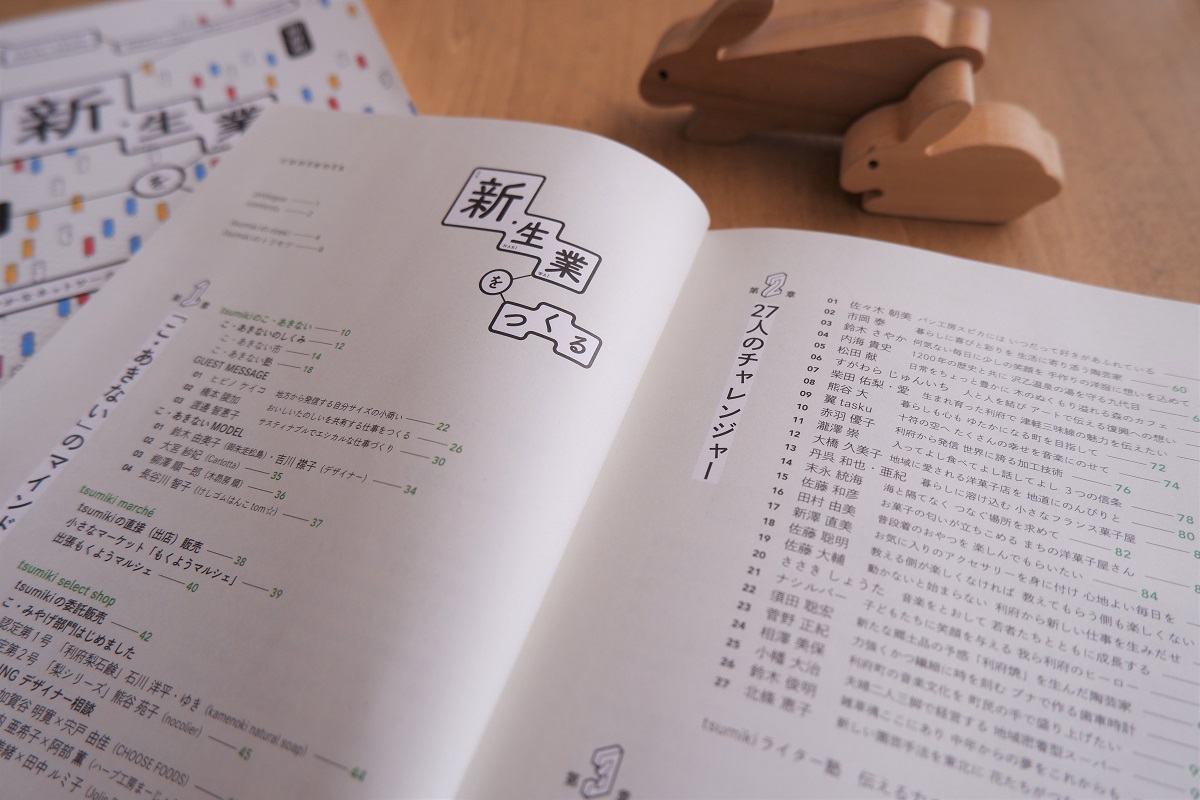 新生業
を
新・生業
NARI
WAI
を
つくる
contents — 2
第1章
「こ・あきない」のマインド
tsumikiのこ・あきない — 10
こ・あきないのしくみ — 12
こ・あきない市 — 14
こ・あきない塾 — 18
GUEST MESSAGE
01 ヒビノ ケイコ 地方から発信する自分サイズの小商い — 22
02 橋本 愛加 おいしいたのしいを共有する仕事をつくる — 26
03 渡邊 智惠子 サスティナブルでエシカルな仕事づくり — 30
こ・あきない MODEL
01 鈴木 由美子(御来光松島)・吉川 襟子(デザイナー) — 34
02 大宮 紗妃(Carlotta) — 35
03 柳澤 龍一郎(木昂房 龍) — 36
04 長谷川 智子(けしゴムはんこ tom☆) — 37
tsumiki marché
tsumikiの直接(出店)販売 — 38
小さなマーケット「もくようマルシェ」 — 39
出張もくようマルシェ — 40
tsumiki select shop
tsumikiの委託販売 — 42
こ・みやげ部門はじめました
認定第1号 「利府梨石鹸」 石川 洋平・ゆき(kamenoki natural soap) — 44
定第2号 「梨シリーズ」 熊谷 苑子(nocolier) — 45
NG デザイナー相談
加賀谷 明寛×宍戸 由佳(CHOOSE FOODS)
亜希子×阿部 薫(ハーブ工房まーじ
緒×田中 ルミ子
第2章
27人のチャレンジャー
01 佐々木 朝美 パン工房スピカには いつだって好きがあふれている
02 市岡 泰 暮らしに喜びと彩りを 生活に寄り添う陶芸家 — 60
03 鈴木 さやか 何気ない毎日に少しの笑顔を 手作りの洋服に想いを込めて
04 内海 貴史 1200年の歴史と共に 沢乙温泉の湯を守る九代目
05 松田 献 日常をちょっと豊かに 木のぬくもり溢れる森のカフェ
06 すがわら じゅんいち 人と人を結び アートで伝える復興への想い
07 柴田 佑梨・愛 生まれ育った利府で 津軽三味線の魅力を伝えたい
08 熊谷 大 十符の空へ たくさんの幸せを音楽にのせて — 72
09 翼 tasku 暮らしも心も ゆたかになる町を目指して — 74
10 赤羽 優子 利府から発信 世界に誇る加工技術 — 76
11 瀧澤 崇 入ってよし食べてよし話してよし 3つの信条 — 78
12 大橋 久美子 地域に愛される洋菓子店を 地道にのんびりと — 80
13 丹呉 和也・亜紀 暮らしに溶け込む 小さなフランス菓子屋
14 末永 統海 海と陸でなく つなぐ場所を求めて — 82
15 佐藤 和彦 お菓子の匂いが立ちこめる まちの洋菓子屋さん
16 田村 由美 普段着のおやつを 楽しんでもらいたい — 84
17 新澤 直美 お気に入りのアクセサリーを身に付け 心地よい毎日を
18 佐藤 聡明 教える側が楽しくなければ 教えてもらう側も楽しくない
19 佐藤 大輔 動かないと始まらない 利府から新しい仕事を生みだせ
20 ささき しょうた 音楽をとおして 若者たちとともに成長する
21 ナシルバー 子どもたちに笑顔を与える 我ら利府のヒーロー
22 須田 聡宏 新たな郷土品の予感 「利府焼」を生んだ陶芸家
23 菅野 正紀 力強くかつ繊細に時を刻む ブナで作る歯車時計
24 相澤 美保 利府町の音楽文化を 町民の手で盛り上げたい
25 小幡 大治 夫婦二人三脚で経営する 地域密着型スーパー
26 鈴木 俊明 雑草魂ここにあり 中年からの夢をこれからも
27 北條 恵子 新しい園芸手法を東北に 花たちが
tsumiki ライター塾 伝える
第3章